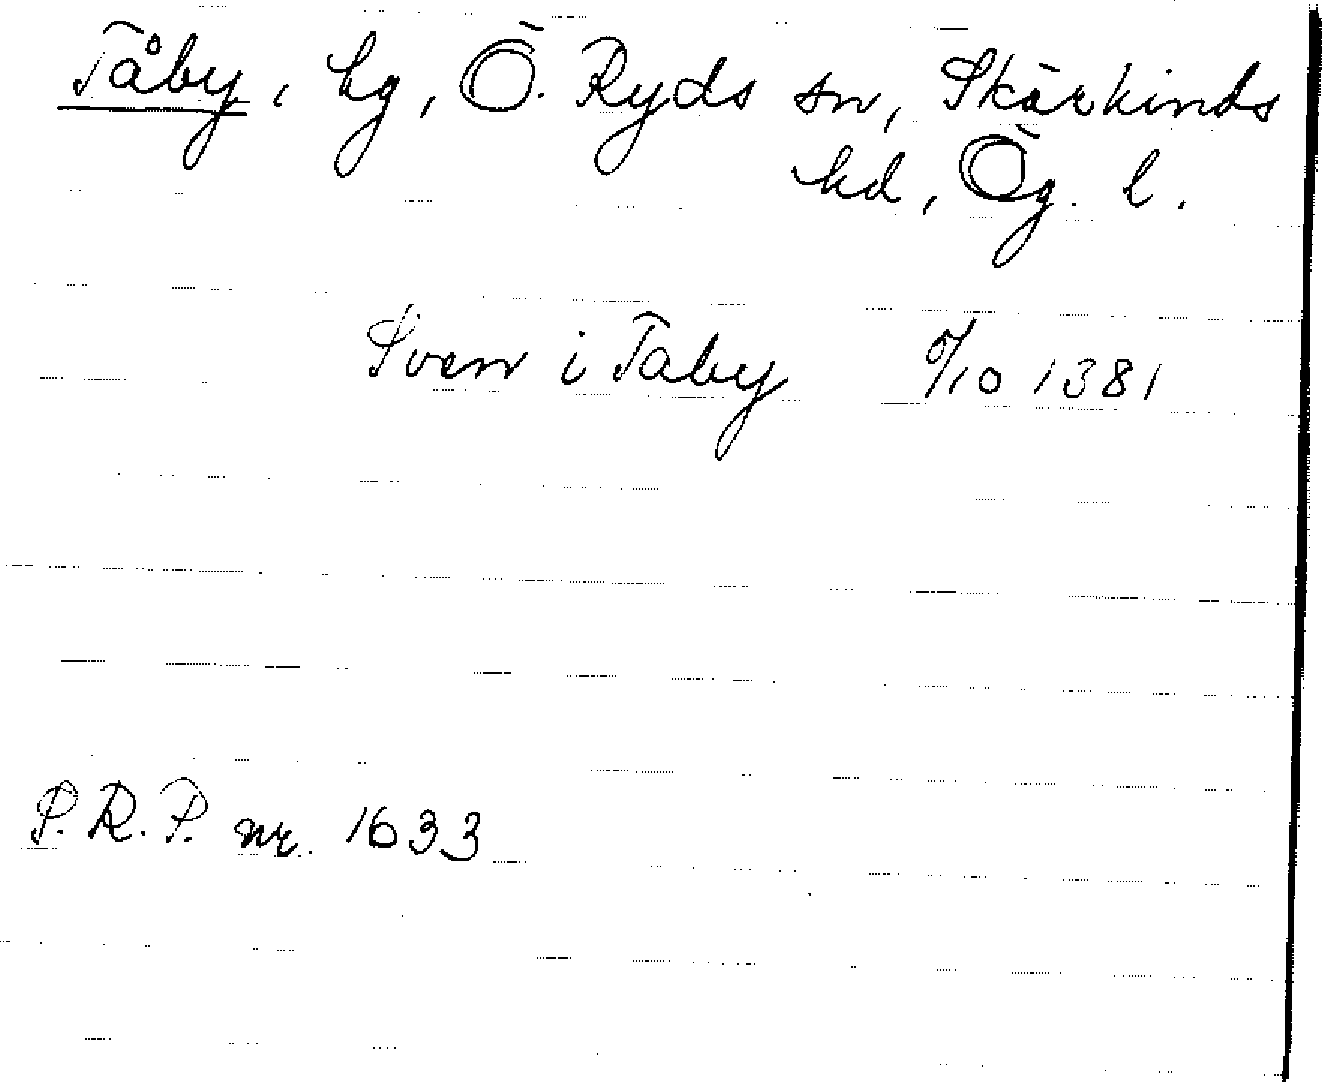 Tåby, hg, Ö. Ryds sn, Skärkinds
hd, Ög. l.
Sven i Taby 9/10 1381
S.R.P. nr. 1633